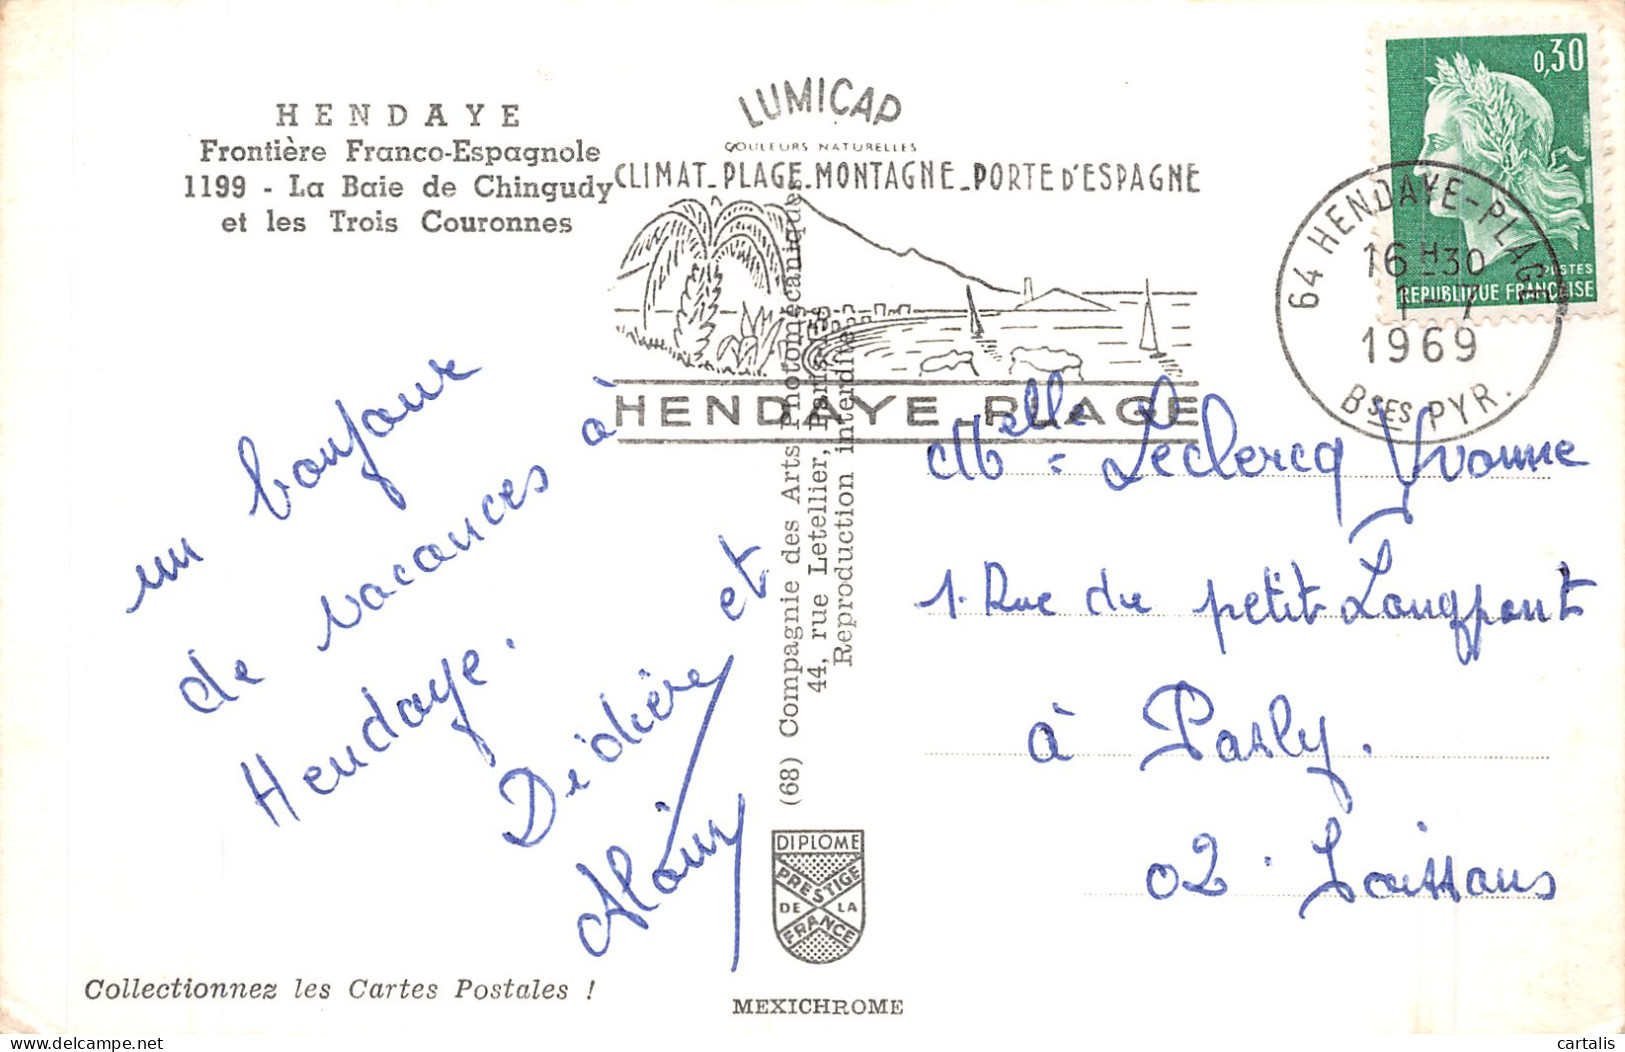 HENDAYE
Frontière Franco-Espagnole
1199 - La Baie de Chingudy
et les Trois Couronnes
LUMICAP
COULEURS NATURELLES
CLIMAT_PLAGE_MONTAGNE_PORTE D'ESPAGNE
HENDAYE PLAGE
0,30
POSTES
REPUBLIQUE FRANÇAISE
64 HENDAYE-PLAGE
16 H 30
1 - 7
1969
BSES PYR.
un bonjour
de vacances à
Hendaye.
Didière et
Alain
(68) Compagnie des Arts Photomécaniques
44, rue Letellier, Paris
Reproduction interdite
Melle = Leclercq Yvonne
1. Rue du petit Longpont
à Pasly.
02. Soissons
DIPLOME
PRESTIGE
DE LA
FRANCE
Collectionnez les Cartes Postales !
MEXICHROME
delcampe.net
cartalis